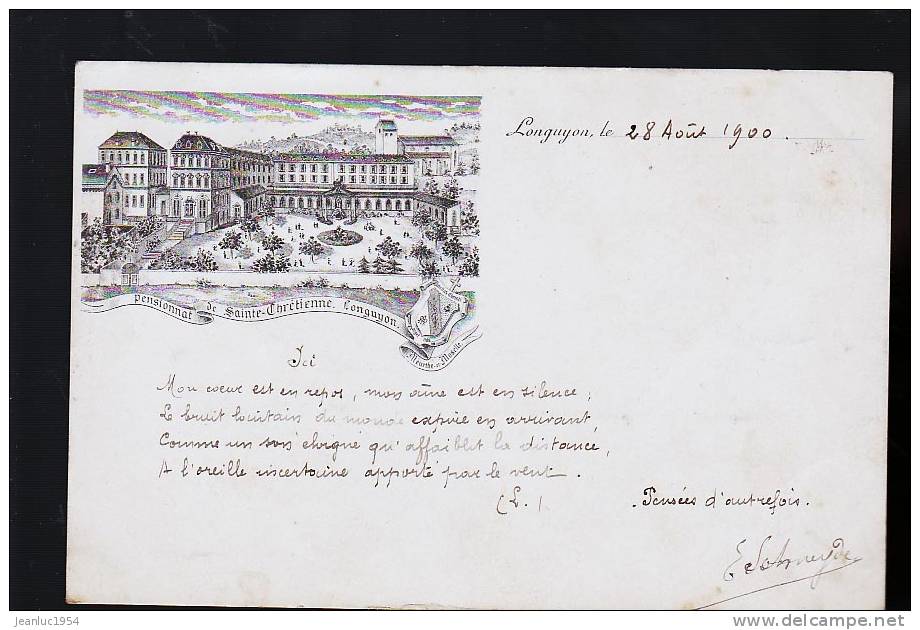 Longuyon, le 28 Août 1900.
Pensionnat de Sainte-Chrétienne, Longuyon.
Meurthe-et-Moselle
Ici
Mon coeur est en repos, mon âme est en silence;
Le bruit lointain du monde expire en arrivant,
Comme un son éloigné qu'affaiblit la distance,
A l'oreille incertaine apporté par le vent.
(L.)
. Pensées d'autrefois.
jeanluc1954
delcampe.net